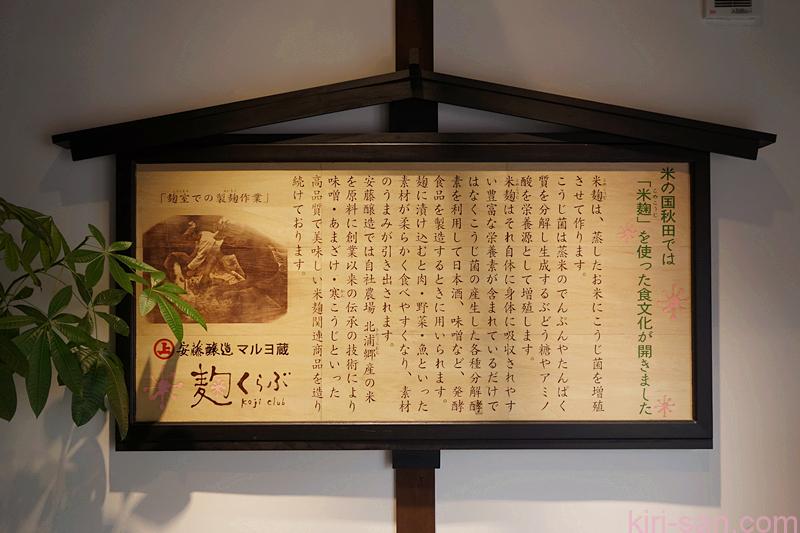 米の国秋田では
「米麹」を使った食文化が開きました
こめこうじ
米麹は、蒸したお米にこうじ菌を増殖
させて作ります。
こうじ菌は蒸米のでんぷんやたんぱく
質を分解し生成するぶどう糖やアミノ
酸を栄養源として増殖します。
米麹はそれ自体に身体に吸収されやす
い豊富な栄養素が含まれているだけで
はなくこうじ菌の産生した各種分解酵
素を利用して日本酒、味噌など、発酵
食品を製造するときに用いられます。
麹に漬け込むと肉・野菜・魚といった
素材が柔らかく食べやすくなり、素材
のうまみが引き出されます。
安藤醸造では自社農場 北浦郷産の米
を原料に創業以来の伝承の技術により
味噌・あまざけ・寒こうじといった
高品質で美味しい米麹関連商品を造り
続けております。
「麹室での製麹作業」
上 安藤醸造 マルヨ蔵
麹くらぶ
Koji club
kiri-san.com